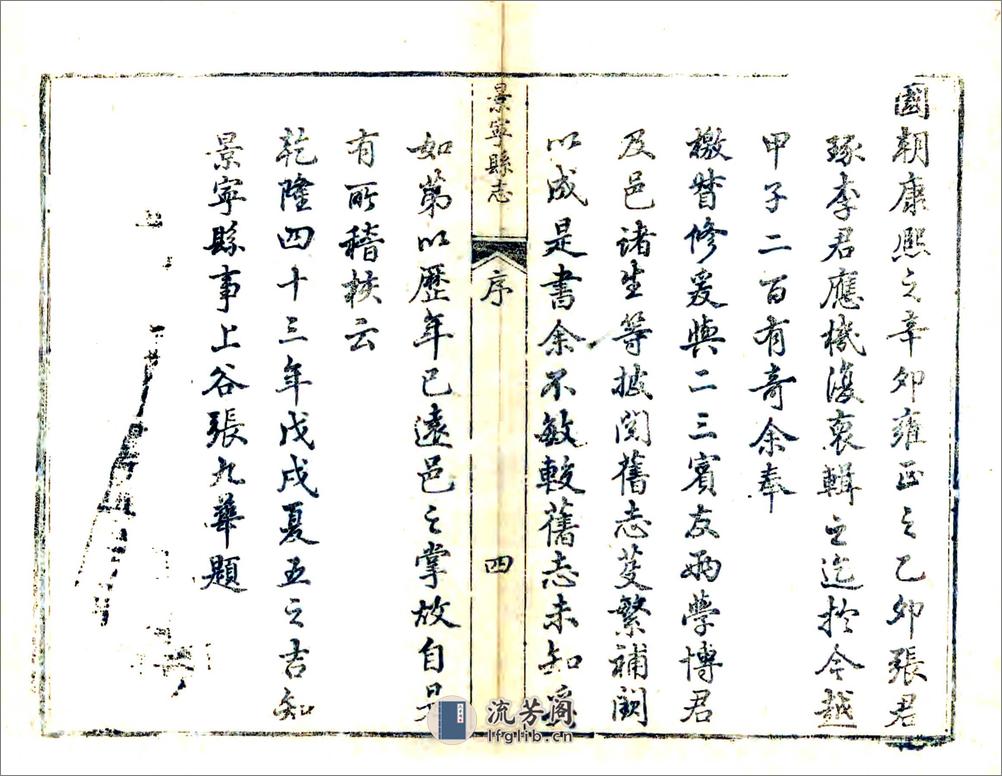 國朝康熙之辛卯雍正之乙卯張君
琢李君應機復裒輯之迄於今越
甲子二百有奇余奉
檄督修爰與二三賓友兩學博君
及邑諸生等披閱舊志芟繁補闕
以成是書余不敏較舊志未知奚
如第以歷年已遠邑之掌故自是
有所稽核云
乾隆四十三年戊戌夏五之吉知
景寧縣事上谷張九華題
景寧縣志
序
四
流芳阁
lfglib.cn